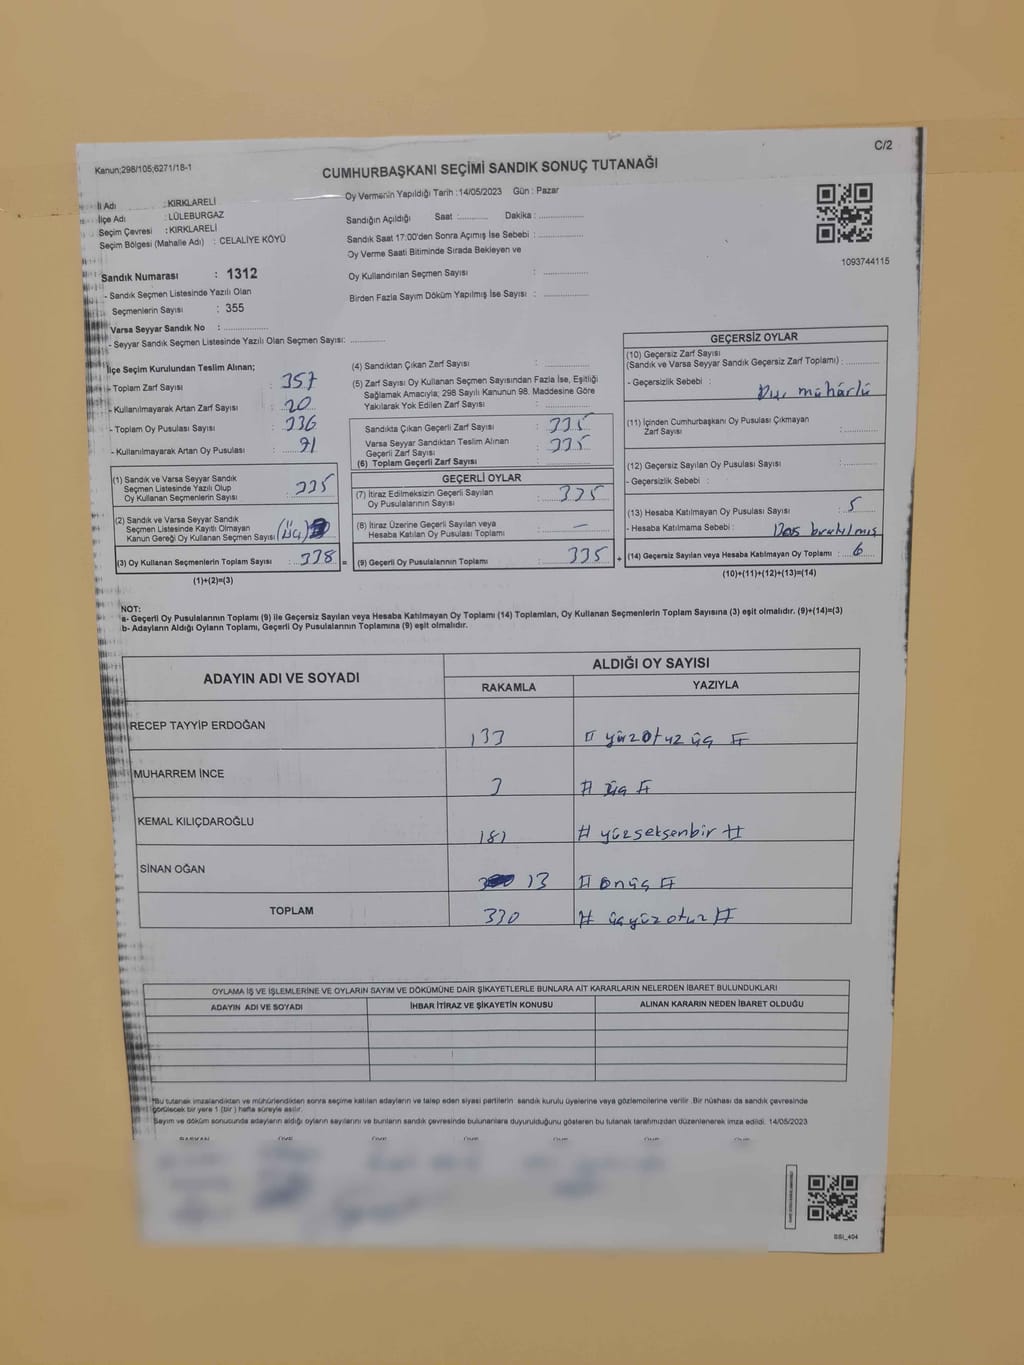 Kanun;298/105;6271/18-1
C/2
CUMHURBAŞKANI SEÇİMİ SANDIK SONUÇ TUTANAĞI
İl Adı : KIRKLARELİ
İlçe Adı : LÜLEBURGAZ
Seçim Çevresi : KIRKLARELİ
Seçim Bölgesi (Mahalle Adı) : CELALİYE KÖYÜ
Sandık Numarası : 1312
- Sandık Seçmen Listesinde Yazılı Olan
Seçmenlerin Sayısı : 355
Varsa Seyyar Sandık No : ..................
- Seyyar Sandık Seçmen Listesinde Yazılı Olan Seçmen Sayısı: ..............
Oy Vermenin Yapıldığı Tarih :14/05/2023 Gün : Pazar
Sandığın Açıldığı Saat :............ Dakika : ..................
Sandık Saat 17:00'den Sonra Açımış İse Sebebi : ..................
Oy Verme Saati Bitiminde Sırada Bekleyen ve
Oy Kullandırılan Seçmen Sayısı : ..................
Birden Fazla Sayım Döküm Yapılmış İse Sayısı : ..................
1093744115
İlçe Seçim Kurulundan Teslim Alınan;
- Toplam Zarf Sayısı : 357
- Kullanılmayarak Artan Zarf Sayısı : 20
- Toplam Oy Pusulası Sayısı : 336
- Kullanılmayarak Artan Oy Pusulası : 91
(1) Sandık ve Varsa Seyyar Sandık
Seçmen Listesinde Yazılı Olup
Oy Kullanan Seçmenlerin Sayısı : 335
(2) Sandık ve Varsa Seyyar Sandık
Seçmen Listesinde Kayıtlı Olmayan
Kanun Gereği Oy Kullanan Seçmen Sayısı (üç)
(3) Oy Kullanan Seçmenlerin Toplam Sayısı : 338 =
(1)+(2)=(3)
(4) Sandıktan Çıkan Zarf Sayısı : ..................
(5) Zarf Sayısı Oy Kullanan Seçmen Sayısından Fazla İse, Eşitliği
Sağlamak Amacıyla; 298 Sayılı Kanunun 98. Maddesine Göre
Yakılarak Yok Edilen Zarf Sayısı : ..................
Sandıkta Çıkan Geçerli Zarf Sayısı : 335
Varsa Seyyar Sandıktan Teslim Alınan
Geçerli Zarf Sayısı : 335
(6) Toplam Geçerli Zarf Sayısı : ..................
GEÇERLİ OYLAR
(7) İtiraz Edilmeksizin Geçerli Sayılan
Oy Pusulasının Sayısı : 335
(8) İtiraz Üzerine Geçerli Sayılan veya
Hesaba Katılan Oy Pusulası Toplamı : —
(9) Geçerli Oy Pusulalarının Toplamı : 335 +
GEÇERSİZ OYLAR
(10) Geçersiz Zarf Sayısı
(Sandık ve Varsa Seyyar Sandık Geçersiz Zarf Toplamı) : ............
- Geçersizlik Sebebi : mühürlü
(11) İçinden Cumhurbaşkanı Oy Pusulası Çıkmayan
Zarf Sayısı : ............
(12) Geçersiz Sayılan Oy Pusulası Sayısı : ............
- Geçersizlik Sebebi :
(13) Hesaba Katılmayan Oy Pusulası Sayısı : 5
- Hesaba Katılmama Sebebi : Boş bırakılmış
(14) Geçersiz Sayılan veya Hesaba Katılmayan Oy Toplamı : 6
(10)+(11)+(12)+(13)=(14)
NOT:
a- Geçerli Oy Pusulalarının Toplamı (9) ile Geçersiz Sayılan veya Hesaba Katılmayan Oy Toplamı (14) Toplamları, Oy Kullanan Seçmenlerin Toplam Sayısına (3) eşit olmalıdır. (9)+(14)=(3)
b- Adayların Aldığı Oyların Toplamı, Geçerli Oy Pusulalarının Toplamına (9) eşit olmalıdır.
ADAYIN ADI VE SOYADI
ALDIĞI OY SAYISI
RAKAMLA YAZIYLA
RECEP TAYYİP ERDOĞAN 133 # yüzotuz üç #
MUHARREM İNCE 3 # üç #
KEMAL KILIÇDAROĞLU 181 # yüzseksenbir #
SİNAN OĞAN 13 # onüç #
TOPLAM 330 # üçyüz otuz #
OYLAMA İŞ VE İŞLEMLERİNE VE OYLARIN SAYIM VE DÖKÜMÜNE DAİR ŞİKAYETLERLE BUNLARA AİT KARARLARIN NELERDEN İBARET BULUNDUKLARI
ADAYIN ADI VE SOYADI İHBAR İTİRAZ VE ŞİKAYETİN KONUSU ALINAN KARARIN NEDEN İBARET OLDUĞU
*Bu tutanak imzalandıktan ve mühürlendikten sonra seçime katılan adayların ve talep eden siyasi partilerin sandık kurulu üyelerine veya gözlemcilerine verilir .Bir nüshası da sandık çevresinde
görülecek bir yere 1 (bir ) hafta süreyle asılır.
Sayım ve döküm sonucunda adayların aldığı oyların sayılarını ve bunların sandık çevresinde bulunanlara duyurulduğunu gösteren bu tutanak tarafımızdan düzenlenerek imza edildi. 14/05/2023
SSI_404